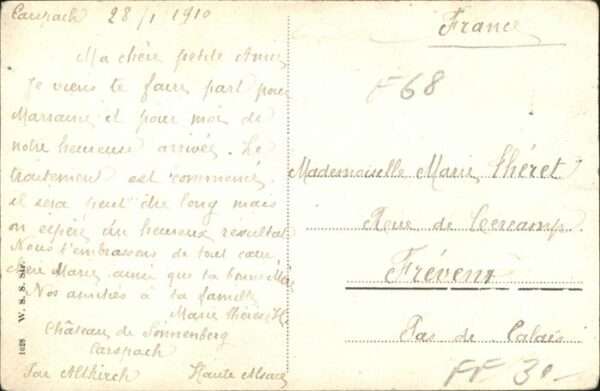 Carspach 28/1 1910
Ma chère petite Amie
Je viens te faire part pour
Marraine et pour moi de
notre heureuse arrivée. Le
traitement est commencé,
il sera peut être long mais
on espère un heureux résultat
Nous t'embrassons de tout cœur
chère Marie, ainsi que ta bonne Mère
Nos amitiés à ta famille
Marie Thérèse
Château de Sonnenberg
Carspach
Par Altkirch Haute Alsace
1628 W. S. S. Str.
France
F68
Mademoiselle Marie Théret
Rue de Cercamp
Frévent
Pas de Calais
FF 30-